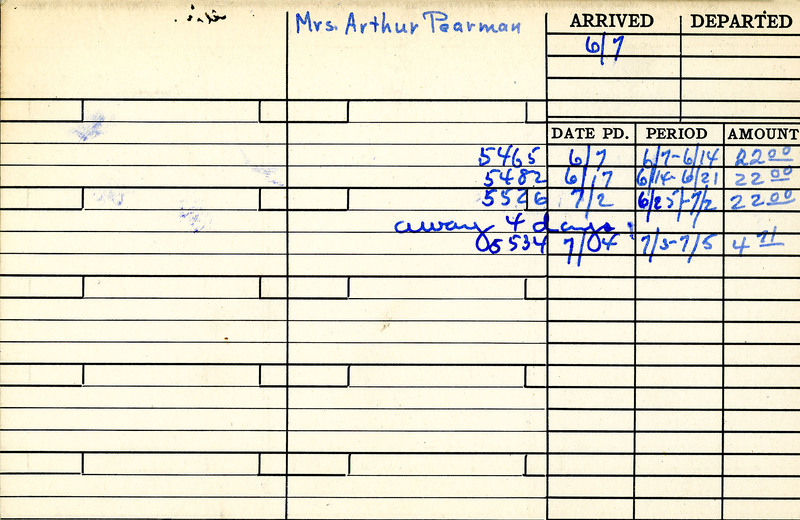 Mrs. Arthur Pearman
ARRIVED DEPARTED
6/7
DATE PD. PERIOD AMOUNT
5465 6/7 6/7-6/14 22 00
5482 6/17 6/14-6/21 22 00
5526 7/2 6/25-7/2 22 00
away 4 days
5534 7/04 7/3-7/5 4 71